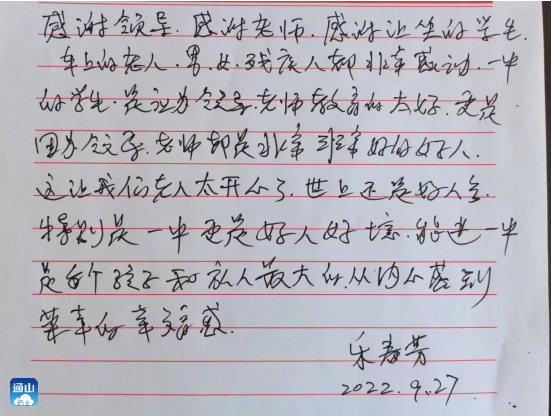 感谢领导.感谢老师.感谢让坐的学生.
车上的老人.男.女.残疾人都非常感动.一中
的学生.是因为领导.老师教育的太好.更是
因为领导.老师都是非常非常好的好人.
这让我们老人太开心了.世上还是好人多
特别是一中更是好人好境.能进一中
是每个孩子和家人最大的.从内心感到
荣幸的幸福感.
乐春芳
2022.9.27
通山